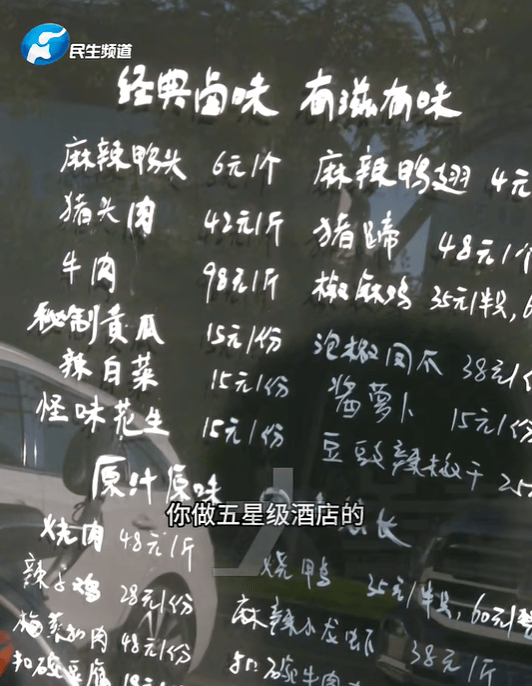 民生频道
经典卤味 有滋有味
麻辣鸭头 6元1个 麻辣鸭翅 4元
猪头肉 42元1斤 猪蹄 48元1个
牛肉 98元1斤 椒麻鸡 35元1半只,6
秘制黄瓜 15元1份 泡椒凤爪 38元1份
辣白菜 15元1份 酱萝卜 15元1份
怪味花生 15元1份 豆豉辣椒干 25
原汁原味
你做五星级酒店的
烧肉 48元1斤 烧鸭 35元1半只,60元1
辣子鸡 28元1份 麻辣小龙虾 38元1斤
梅菜扣肉 48元1份